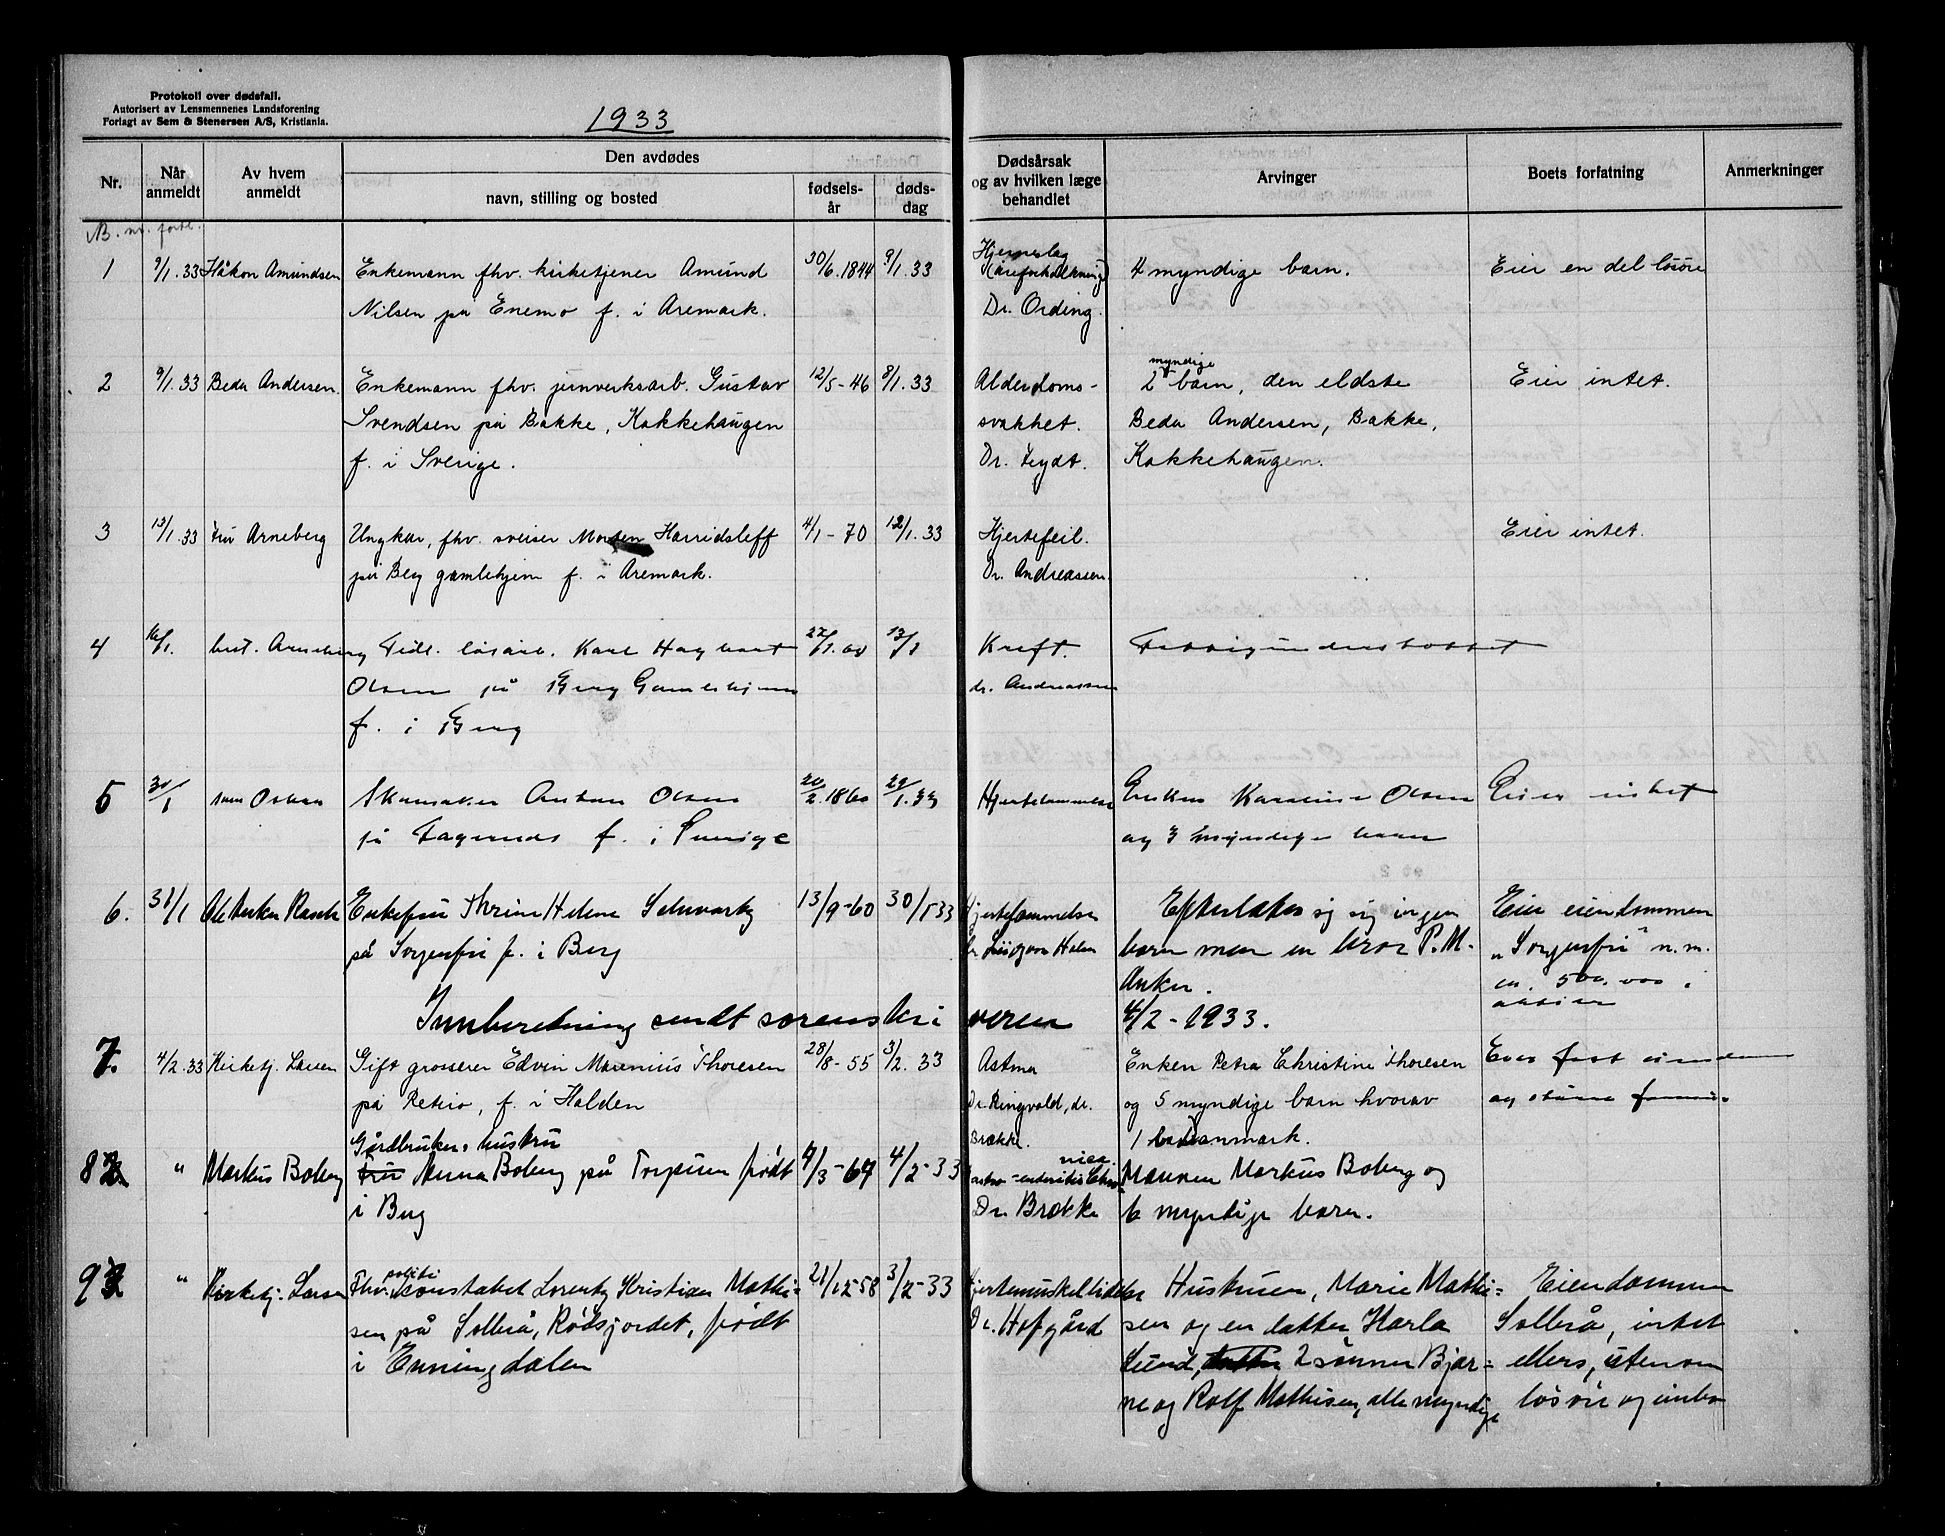 Protokoll over dødsfall.
Autorisert av Lensmennenes Landsforening
Forlagt av Sem & Stenersen A/S, Kristiania.
1933
Nr.
Når anmeldt
Av hvem anmeldt
Den avdødes
navn, stilling og bosted
fødsels-år
døds-dag
Dødsårsak og av hvilken læge behandlet
Arvinger
Boets forfatning
Anmerkninger
1 9/1.33 Håkon Amundsen Enkemann fhv. kirketjener Amund 30/6.1844 9/1.33 Hjerneslag 4 myndige barn. Eier en del løsøre
(åreforkalkning)
Nilsen på Enemo f. i Aremark. Dr. Ording.
2 9/1.33 Beda Andersen. Enkemann fhv. jernverksarb. Gustav 12/5-46 8/1.33 Alderdoms- 2 myndige barn, den eldste Eier intet.
Svendsen på Bakke, Kakkehaugen svakhet. Beda Andersen, Bakke,
f. i Sverige. Dr. Feydt. Kakkehaugen.
3 13/1.33 Fru Arneberg Ungkar, fhv. sveiser Morten Harridsleff 4/1-70 12/1.33 Hjertefeil. Eier intet.
på Berg gamlehjem f. i Aremark. Dr. Andreassen.
4 16/1. best. Arneberg Tidl. løsarb. Karl Hagbart 13/1 Kreft. Fattigunderstøttet
Olsen på Berg Gamlehjem dr. Andreassen
f. i Berg
5 30/1 Anton Olsen 20/2.1860 29/1.33 Hjertelammelse Enken Olsen Eier intet
på f. i Sverige og 3 myndige barn
6. 31/1 Ole Anker Rasch Enkefru Thrine Helene Schwartz 13/9-60 30/1 33 Hjertelammelse Efterlater sig ingen Eier eiendommen
på Sorgenfri f. i Berg Holm barn men en bror P.M. "Sorgenfri" n.m.
Anker. ca. 500.000 i
Innberetning sendt sorenskriveren 4/2-1933. aksjer
7. 4/2.33 Kirketj. Larsen Gift grosserer Edvin Marenius Thoresen 28/8-55 3/2.33 Astma Enken Petra Christine Thoresen Eier fast eiendom
på Retiro, f. i Halden Dr. Ringvold, dr. og 5 myndige barn hvorav og større formue
Brække. 1 i Danmark.
Gårdbruker-hustru
8 " Markus Boberg Fru Anna Boberg på Torpum født 4/3-67 4/2-33 Mannen Markus Boberg og
i Berg Dr. Brække 6 myndige barn.
9 " Kirketj. Larsen Fhv. politi konstabel Lorentz Kristian Mathi- 21/12-58 3/2-33 Hjertemuskellidelse Hustruen, Marie Mathi- Eiendommen
sen på Solbrå, Rødsjordet, født Dr. Hofgård sen og en datter Harla Solbrå, intet
i Enningdalen Lund, 2 sønner Bjar- ellers, utenom
ne og Rolf Mathisen, alle myndige løsøre og innbo